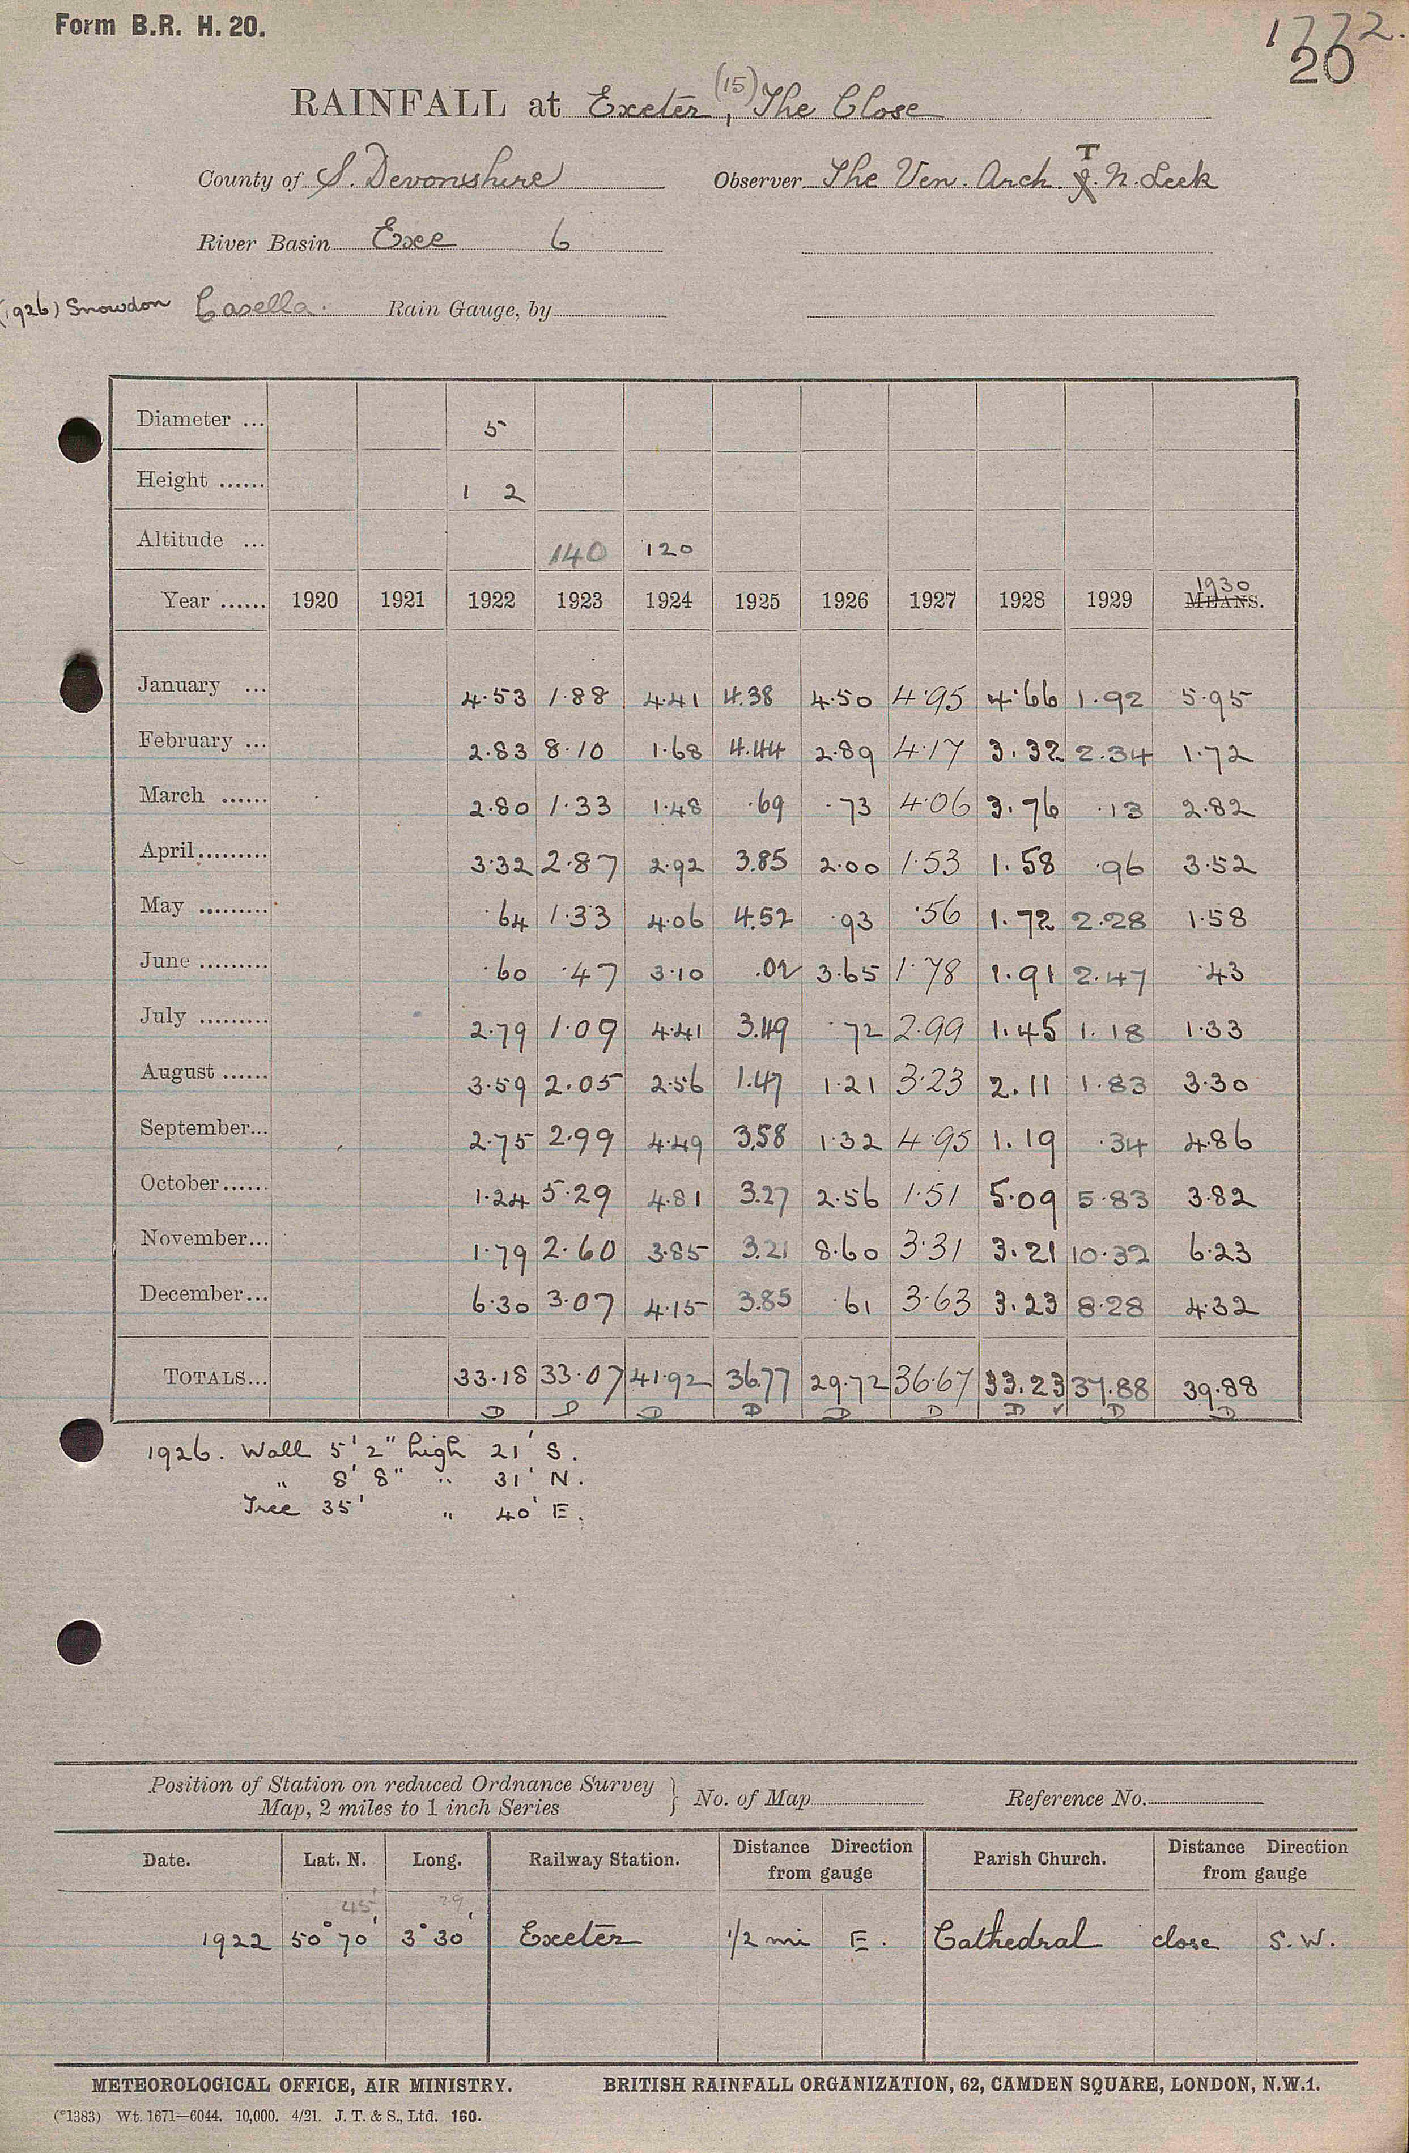 Form B.R. H. 20.
1772.
20
RAINFALL at Exeter, (15) The Close
County of S. Devonshire Observer The Ven. Arch. T. N. Leek
River Basin Exe 6
(1926) Snowdon Casella. Rain Gauge, by
Diameter ... 5
Height ...... 1 2
Altitude ... 140 120
Year ...... 1920 1921 1922 1923 1924 1925 1926 1927 1928 1929 1930 MEANS.
January ... 4.53 1.88 4.41 4.38 4.50 4.95 4.66 1.92 5.95
February ... 2.83 8.10 1.68 4.44 2.89 4.17 3.32 2.34 1.72
March ...... 2.80 1.33 1.48 .69 .73 4.06 3.76 .13 2.82
April......... 3.32 2.87 2.92 3.85 2.00 1.53 1.58 .96 3.52
May ......... .64 1.33 4.06 4.52 .93 .56 1.72 2.28 1.58
June ......... .60 .47 3.10 .02 3.65 1.78 1.91 2.47 .43
July ......... 2.79 1.09 4.41 3.49 .72 2.99 1.45 1.18 1.33
August ...... 3.59 2.05 2.56 1.47 1.21 3.23 2.11 1.83 3.30
September... 2.75 2.99 4.49 3.58 1.32 4.95 1.19 .34 4.86
October...... 1.24 5.29 4.81 3.27 2.56 1.51 5.09 5.83 3.82
November... 1.79 2.60 3.85 3.21 8.60 3.31 3.21 10.32 6.23
December... 6.30 3.07 4.15 3.85 .61 3.63 3.23 8.28 4.32
TOTALS... 33.18 33.07 41.92 36.77 29.72 36.67 33.23 37.88 39.88
D D D D D D D ✓ D D
1926. Wall 5' 2" high 21' S.
" 8' 8" " 31' N.
Tree 35' " 40' E.
Position of Station on reduced Ordnance Survey
Map, 2 miles to 1 inch Series } No. of Map Reference No.
Date. Lat. N. Long. Railway Station. Distance Direction from gauge Parish Church. Distance Direction from gauge
45' 29
1922 50° 70' 3° 30' Exeter 1/2 mi E. Cathedral close S.W.
METEOROLOGICAL OFFICE, AIR MINISTRY. BRITISH RAINFALL ORGANIZATION, 62, CAMDEN SQUARE, LONDON, N.W.1.
(*1383) Wt. 1671—6044. 10,000. 4/21. J. T. & S., Ltd. 160.